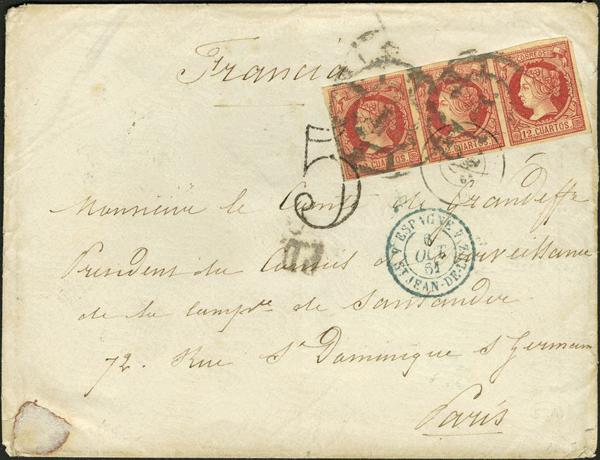 Francia
CORREOS
12 CUARTOS.
12 CUARTOS.
12 CUARTOS.
5
P.D.
61
Monsieur le Comte de
ESPAGNE
6
OCT
61
ST JEAN-DE-LUZ
President du Conseil de Surveillance
de la Comp.e de Santander
72. Rue St Dominique St Germain
Paris